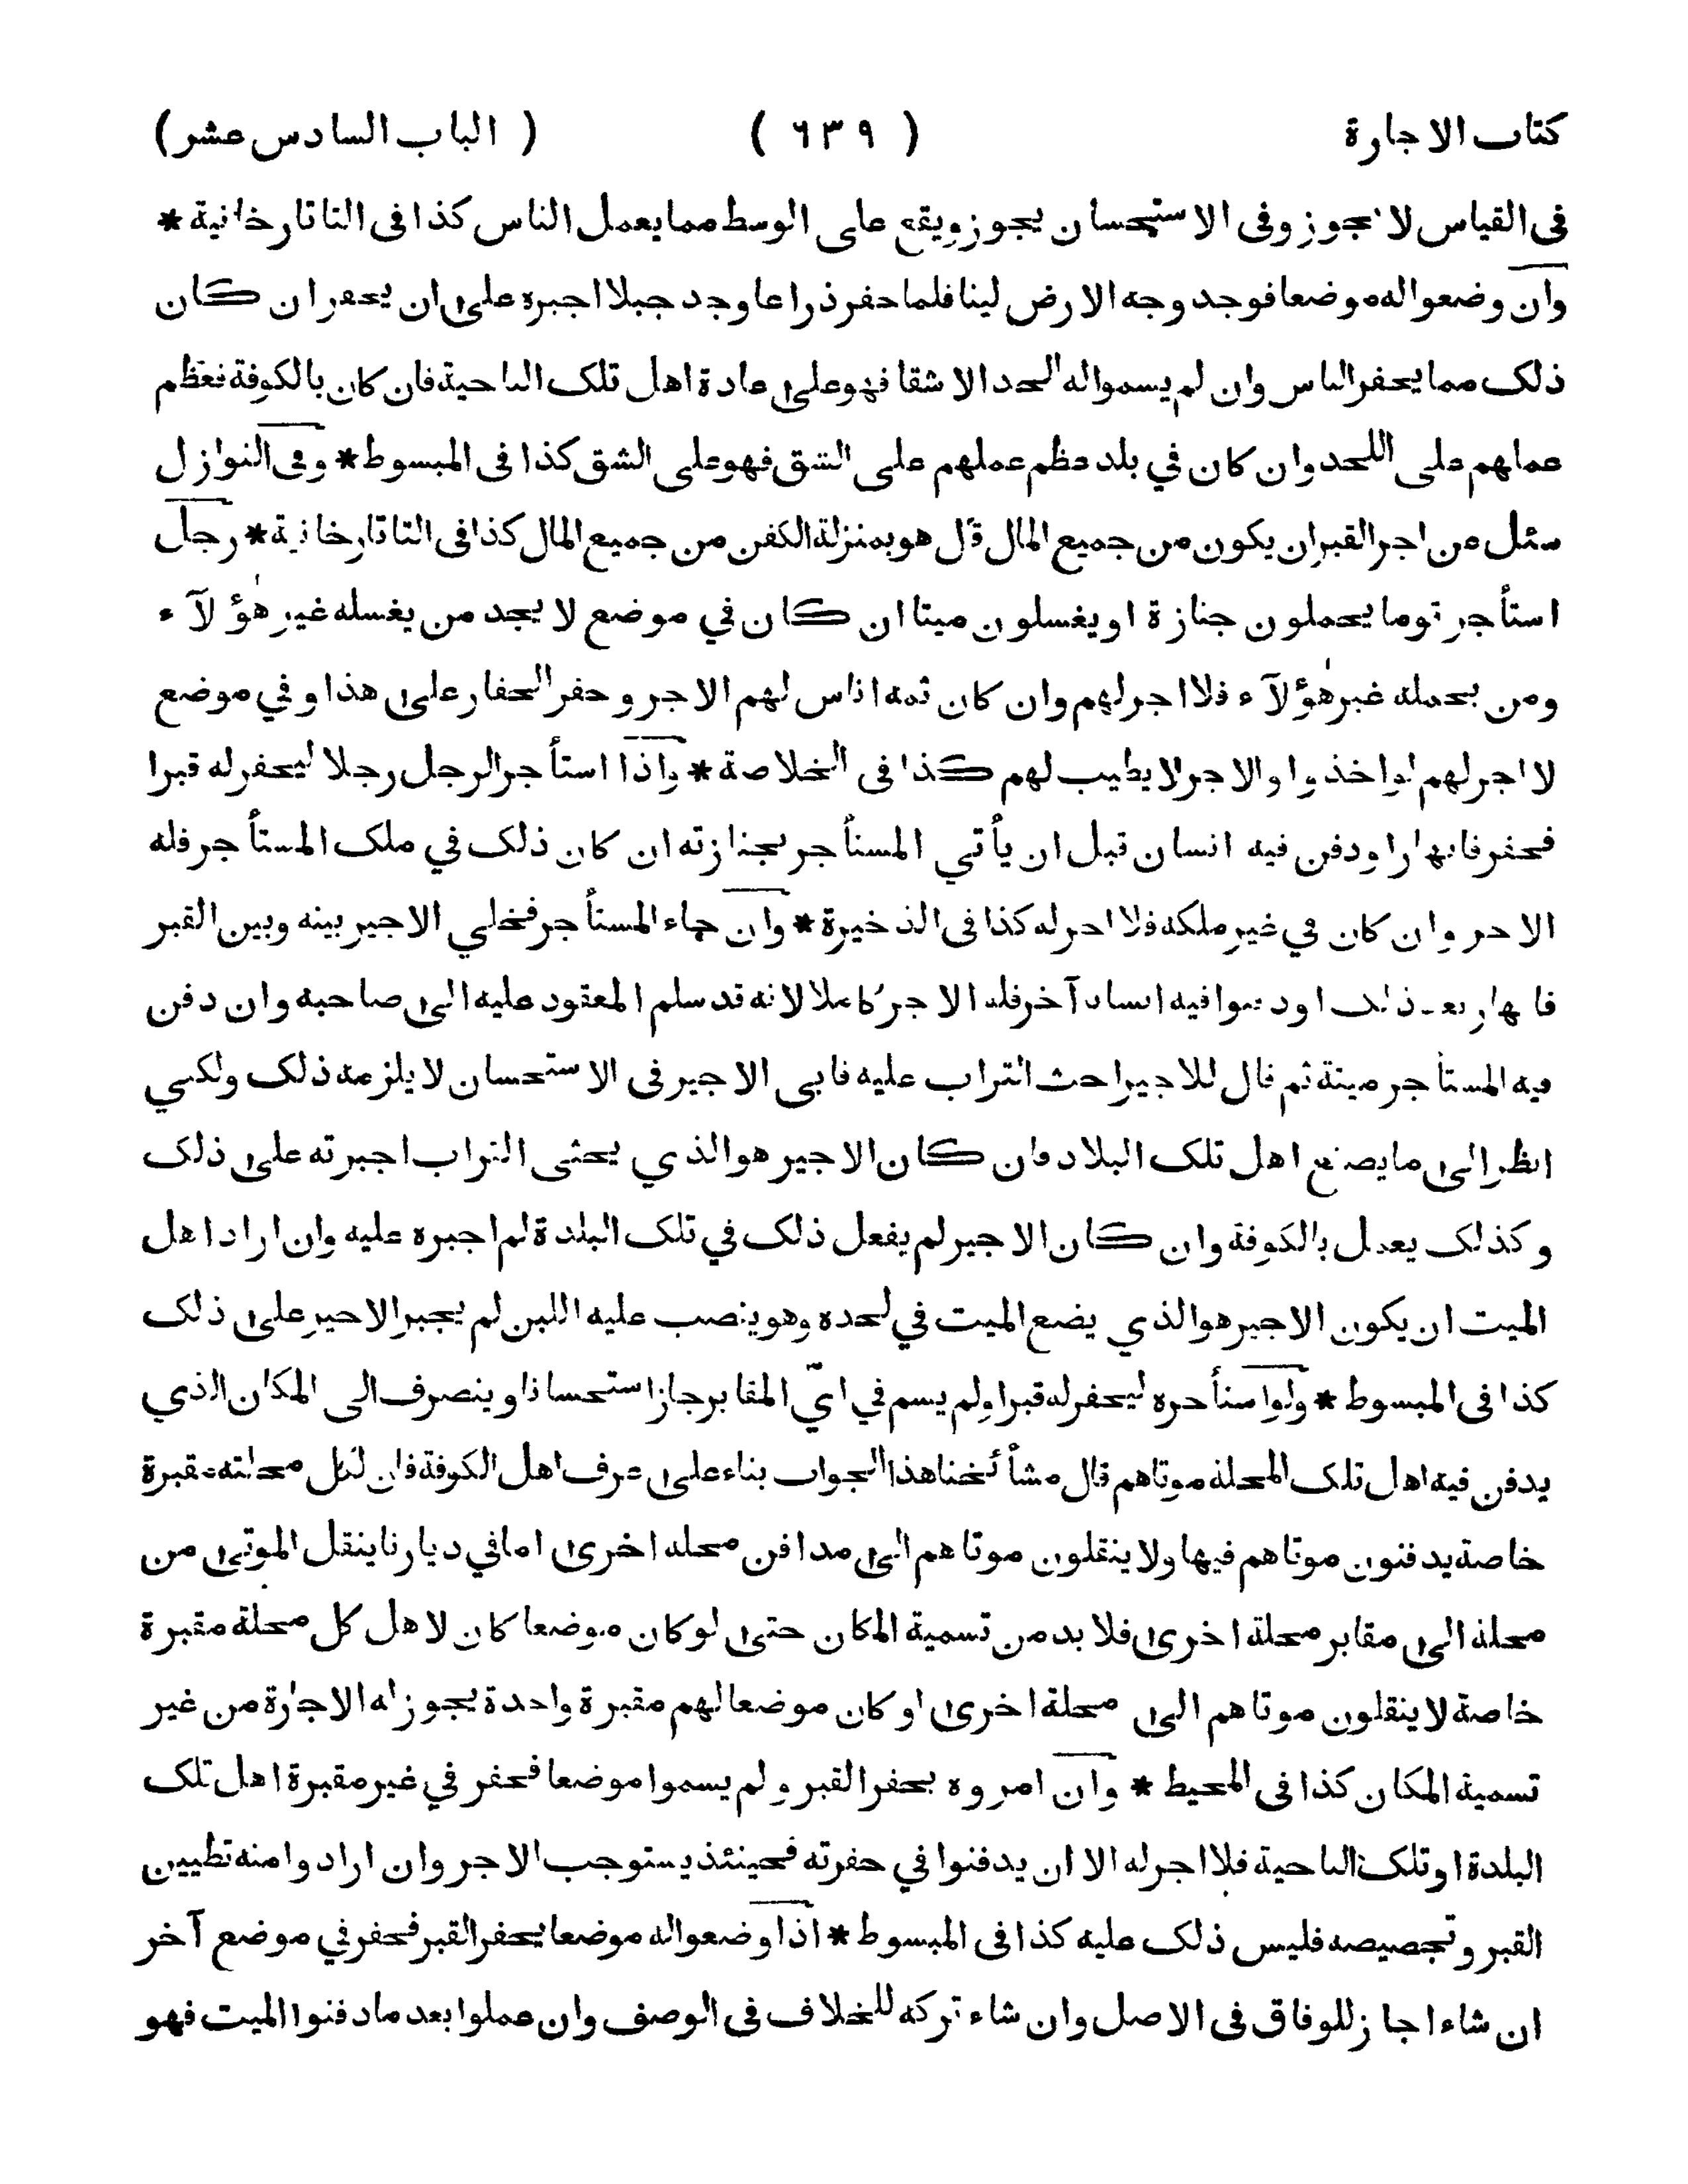 كتاب الاجارة ( ٦٣٩ ) ( الباب السادس عشر )
فى القياس لا يجوز وفى الاستحسان يجوز ويقع على الوسط مما يعمل الناس كذا فى التاتارخانية *
وان وضعوا له موضعا فوجد وجه الارض لينا فلما حفر ذراعا وجد جبلا اجبره على ان يحفر ان كان
ذلك مما يحفر الناس وان لم يسموا له لحدا لا شقا فهو على عادة اهل تلك الناحية فان كان بالكوفة فعظم
عملهم على اللحد وان كان في بلد عظم عملهم على الشق فهو على الشق كذا فى المبسوط * وفى النوازل
سئل عن اجر القبر ان يكون من جميع المال قال هو بمنزلة الكفن من جميع المال كذا فى التاتارخانية * رجل
استأجر قوما يحملون جنازة او يغسلون ميتا ان كان في موضع لا يجد من يغسله غير هؤلآء
ومن يحمله غير هؤلآء فلا اجر لهم وان كان ثمه اناس لهم الاجر و حفر الحفار على هذا و في موضع
لا اجر لهم لو اخذوا والاجر لا يطيب لهم كذا فى الخلاصة * واذا استأجر الرجل رجلا ليحفر له قبرا
فحفر فانهارا ودفن فيه انسان قبل ان يأتي المستأجر بجنازته ان كان ذلك في ملك المستأجر فله
الاجر وان كان في غير ملكه فلا اجر له كذا فى الذخيرة * وان جاء المستأجر فخلي الاجير بينه وبين القبر
فانهار بعد ذلك او دفنوا فيه انسانا آخر فله الاجر كاملا لانه قد سلم المعقود عليه الى صاحبه وان دفن
فيه المستأجر ميتة ثم قال للاجير احث التراب عليه فابى الاجير فى الاستحسان لا يلزمه ذلك ولكني
انظر الى ما يصنع اهل تلك البلاد فان كان الاجير هو الذي يحثى التراب اجبرته على ذلك
وكذلك يعمل بالكوفة وان كان الاجير لم يفعل ذلك في تلك البلدة لم اجبره عليه وان اراد اهل
الميت ان يكون الاجير هو الذي يضع الميت في لحده وهو ينصب عليه اللبن لم يجبر الاجير على ذلك
كذا فى المبسوط * ولو استأجره ليحفر له قبرا ولم يسم في ايّ المقابر جاز استحسانا وينصرف الى المكان الذي
يدفن فيه اهل تلك المحلة موتاهم قال مشأئخنا هذا الجواب بناء على عرف اهل الكوفة فان لكل محلته مقبرة
خاصة يدفنون موتاهم فيها ولا ينقلون موتاهم الى مدافن محله اخرى اما في ديارنا ينقل الموتى من
محلة الى مقابر محلة اخرى فلا بد من تسمية المكان حتى لو كان موضعا كان لاهل كل محلة مقبرة
خاصة لا ينقلون موتاهم الى محلة اخرى او كان موضعا لهم مقبرة واحدة يجوز له الاجارة من غير
تسمية المكان كذا فى المحيط * وان امروه بحفر القبر و لم يسموا موضعا فحفر في غير مقبرة اهل تلك
البلدة او تلك الناحية فلا اجر له الا ان يدفنوا في حفرته فحينئذ يستوجب الاجر وان ارادوا منه تطيين
القبر و تجصيصه فليس ذلك عليه كذا فى المبسوط * اذا وضعوا له موضعا يحفر القبر فحفر في موضع آخر
ان شاء اجاز للوفاق فى الاصل وان شاء تركه للخلاف فى الوصف وان عملوا بعد ما دفنوا الميت فهو